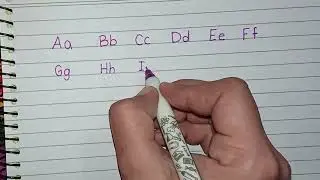 Aa Bb Cc Dd Ee Ff
Gg Hh I